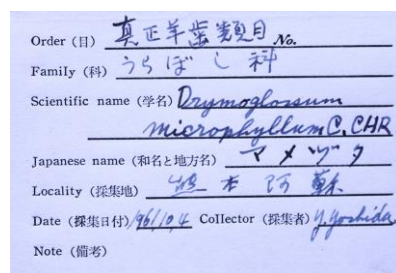 Order (目) 真正羊歯類目 No.
Family (科) うらぼし科
Scientific name (学名) Drymoglossum
microphyllum C. CHR
Japanese name (和名と地方名) マメヅタ
Locality (採集地) 熊本阿蘇
Date (採集日付) 1961.10.4 Collector (採集者) Y. Yoshida
Note (備考)